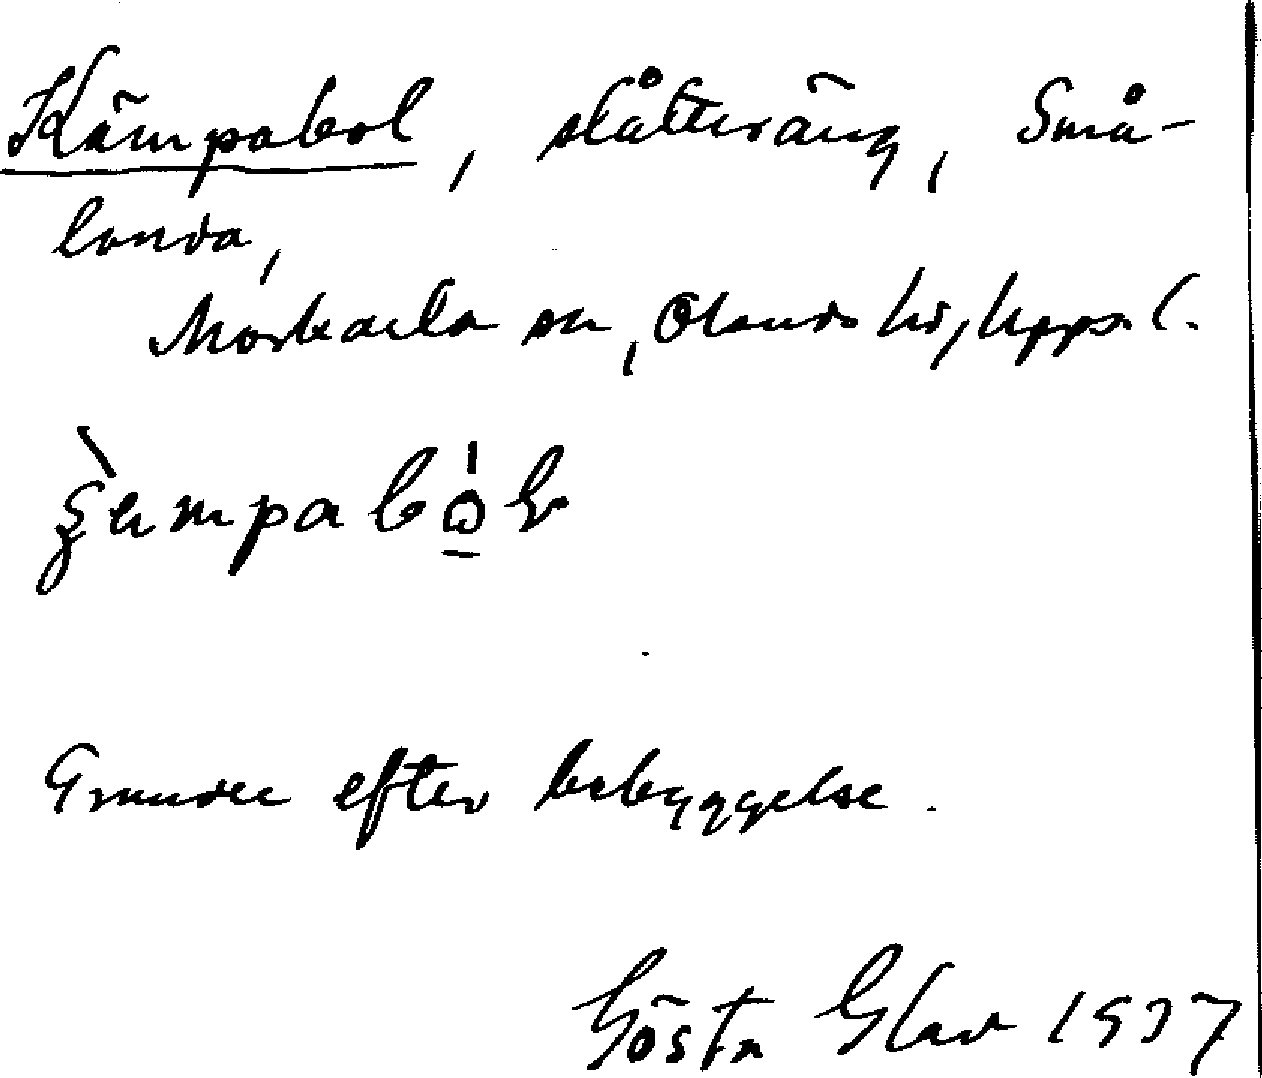 Kämpabol, slåtteräng, Små-
landa,
Morkarla sn, Olands hd, Upps. l.
Grunder efter bebyggelse.
Gösta Glav 1937